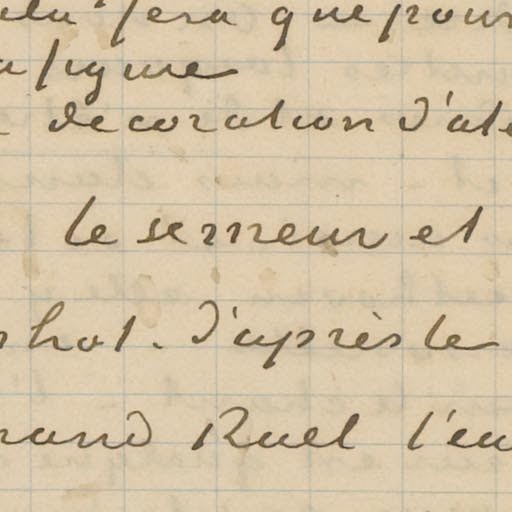 sera que pour
figure
décoration d'ate
le semeur et
phot. d'après le
rand Ruel l'eu